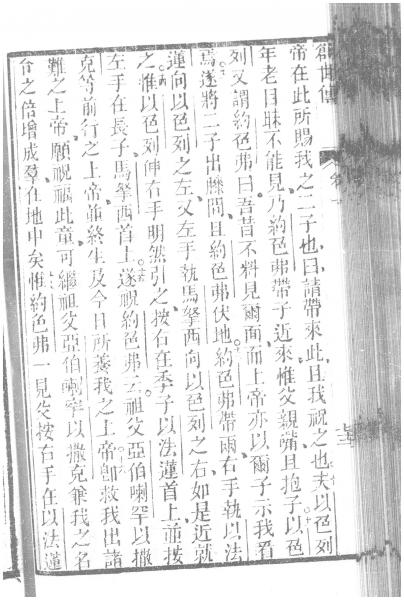 帝在此所賜我之二子也曰請帶來此且我祝之也夫以色列
年老目昧不能見乃約色弗帶子近來惟父親嘴且抱子以色
列又謂約色弗曰吾昔不料見爾面而上帝亦以爾子示我看
焉遂將二子出膝間且約色弗伏地約色弗帶兩右手執以法
蓮向以色列之左又左手執馬拏西向以色列之右如是近就
之惟以色列伸右手明然引之按右在季子以法蓮首上並按
左手在長子馬拏西首上遂祝約色弗云祖父亞伯喇罕以撒
克等前行之上帝並終生及今日所養我之上帝卽救我出諸
難之上帝願祝福此童可繼祖父亞伯喇罕以撒克兼我之名
令之倍增成羣在地中矣惟約色弗一見父按右手在以法蓮